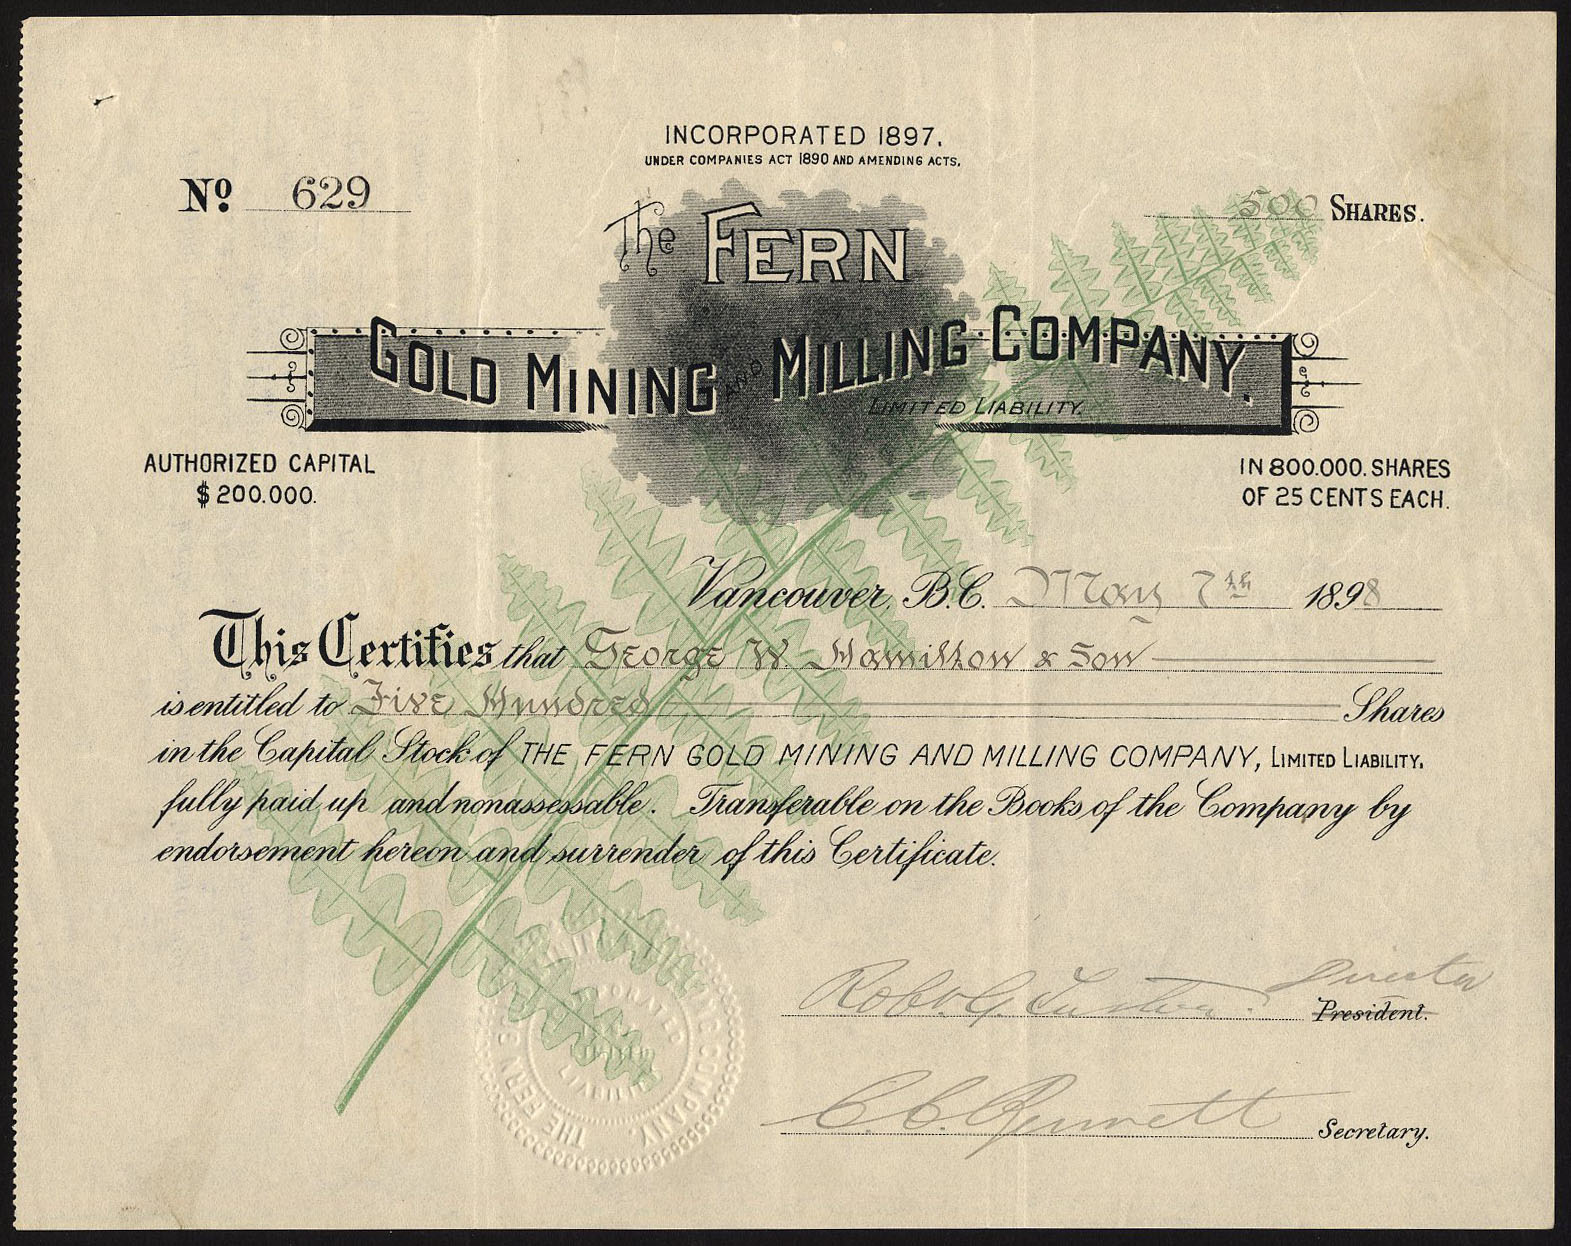 INCORPORATED 1897.
UNDER COMPANIES ACT 1890 AND AMENDING ACTS.
No 629
500 SHARES.
The FERN
GOLD MINING AND MILLING COMPANY.
LIMITED LIABILITY.
AUTHORIZED CAPITAL
$200.000.
IN 800.000. SHARES
OF 25 CENTS EACH.
Vancouver, B.C. May 7th 1898
This Certifies that George W Hamilton & Son
is entitled to Five Hundred Shares
in the Capital Stock of THE FERN GOLD MINING AND MILLING COMPANY, LIMITED LIABILITY.
fully paid up and nonassessable. Transferable on the Books of the Company by
endorsement hereon and surrender of this Certificate.
Robt. G. Director
President.
C. C. Bennett
Secretary.
THE FERN G MINING COMPANY
LIABILITY